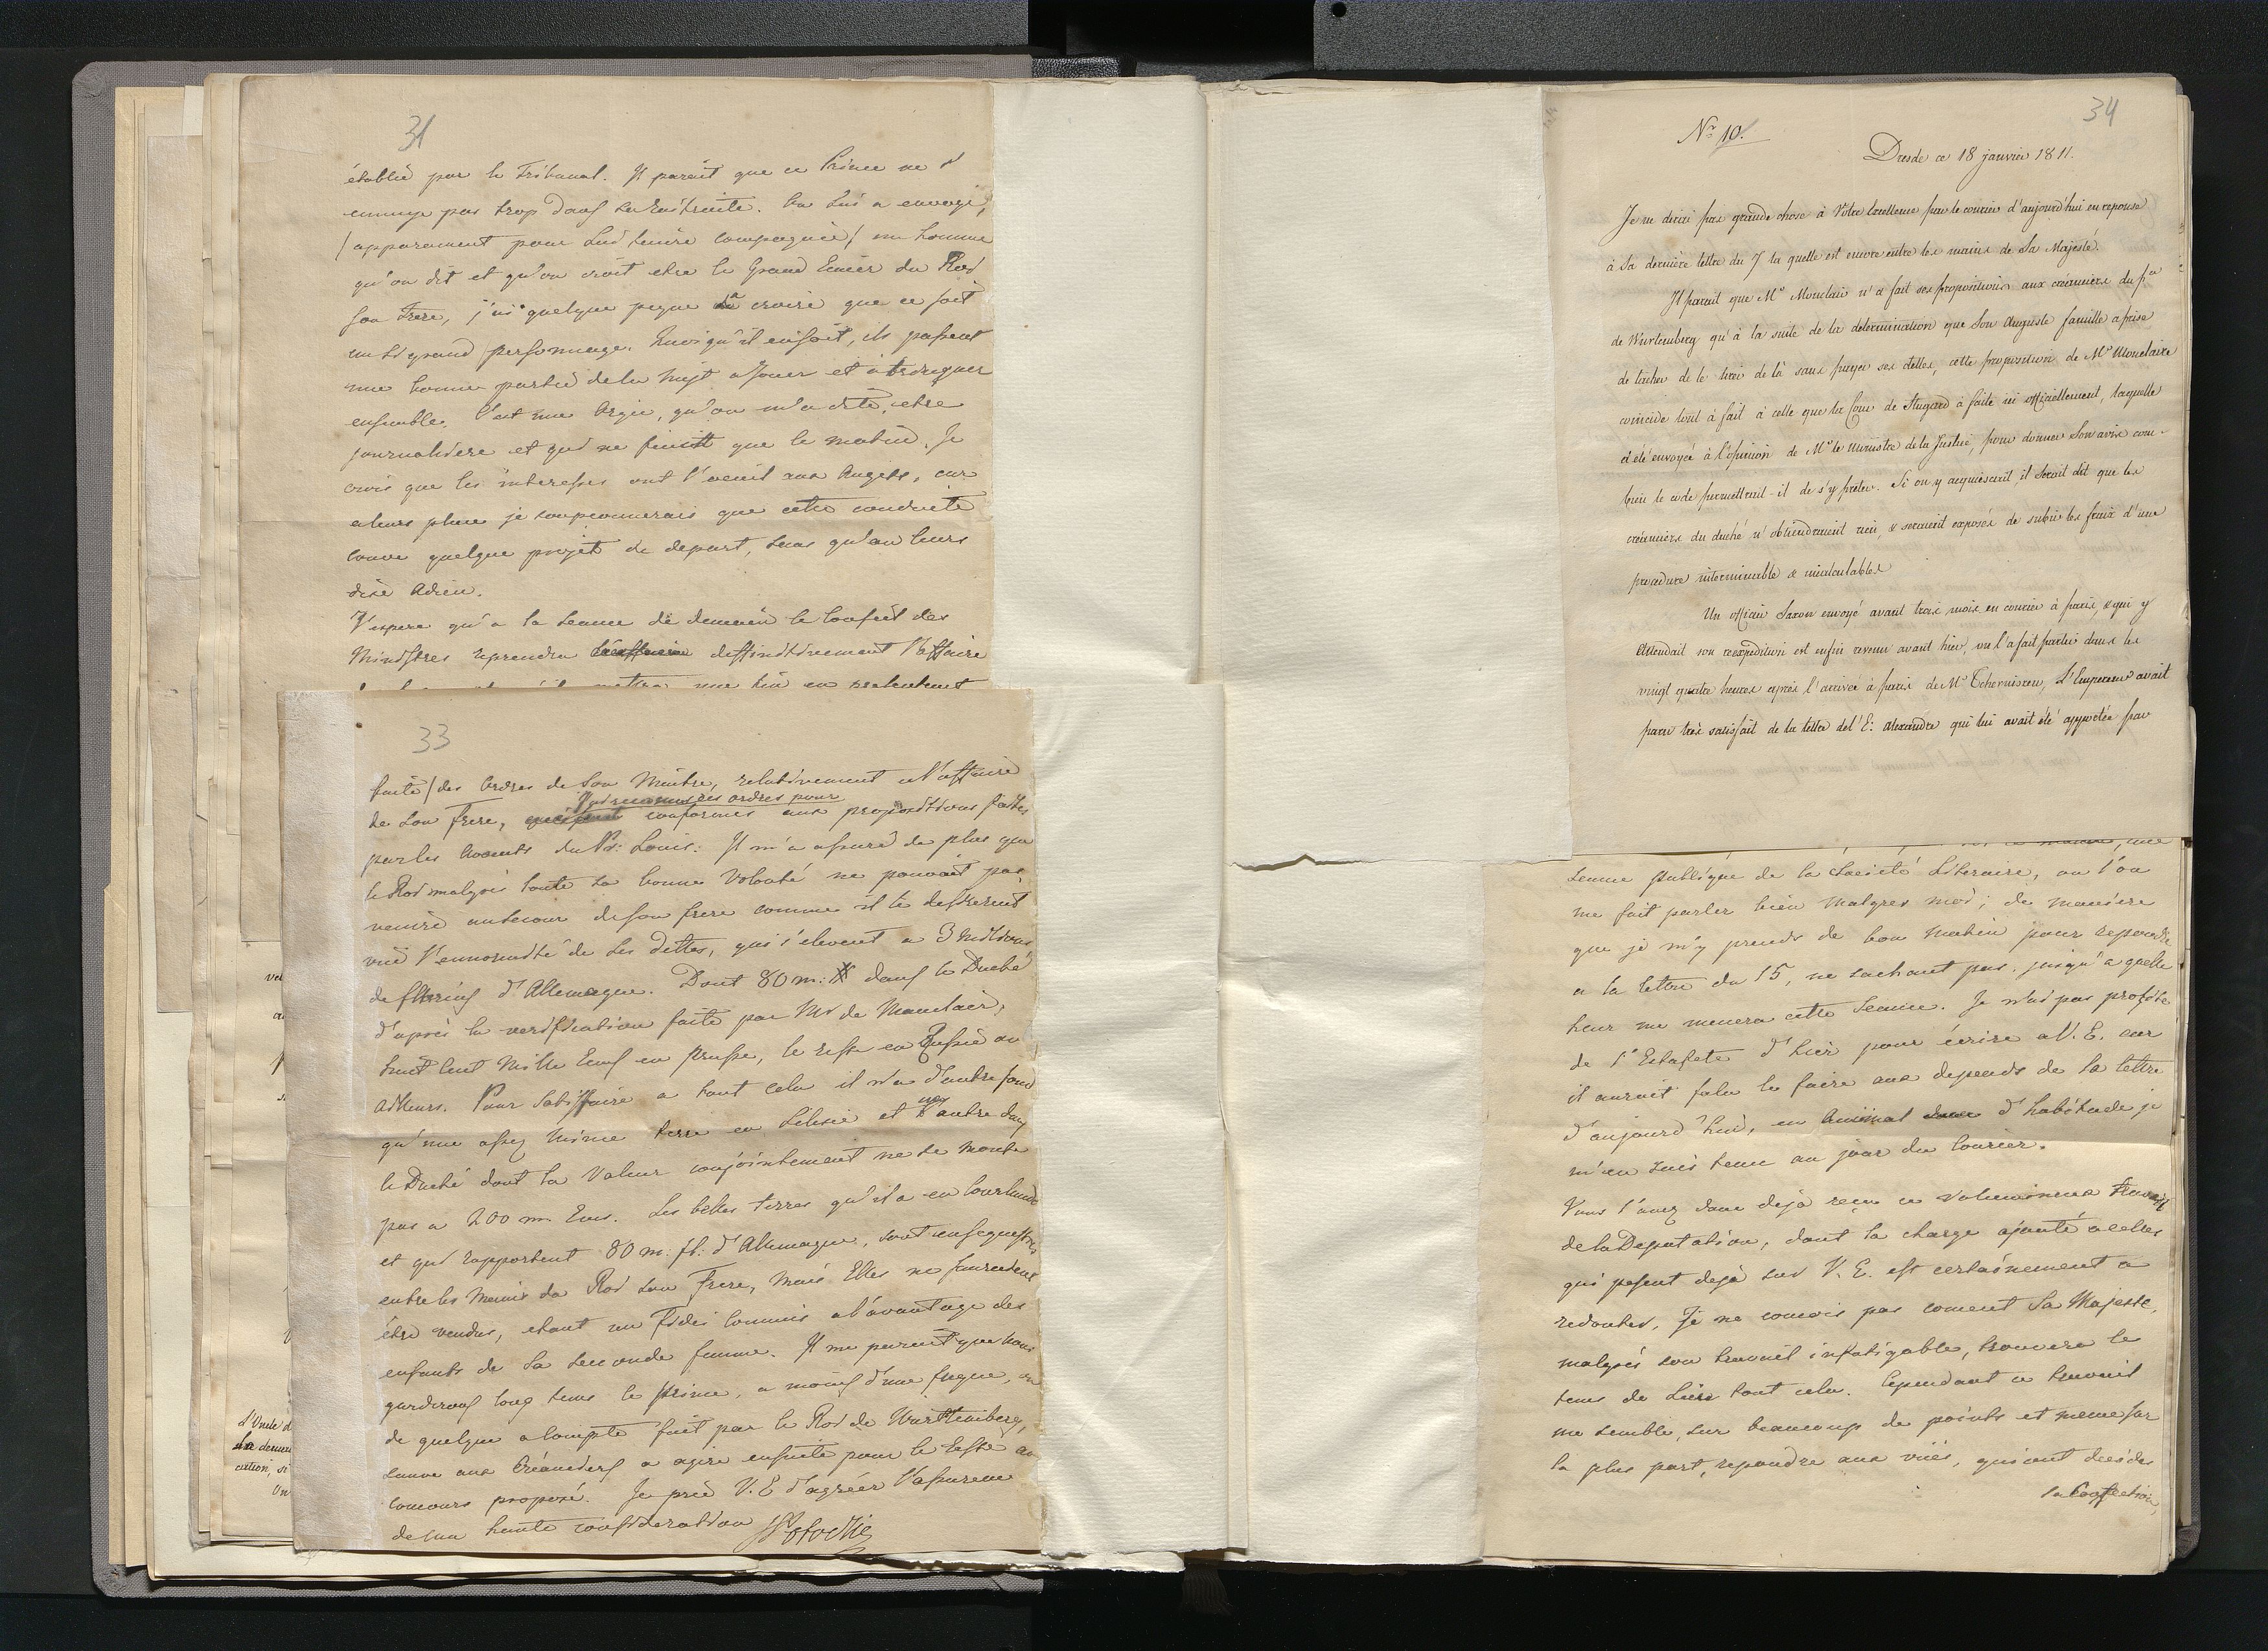 31
établie par le Tribunal. Il parait que ce Prince ne s'
ennuye pas trop dans sa retraite. On lui a envoyé,
/apparament pour lui tenire compagnie/ un homme
qu'on dit et qu'on croit etre le Grand Ecuier du Roi
son Frere, j'ai quelque peyne a croire que ce soit
un si grand personnage. Quoiqu'il en soit, ils passent
une bonne partie de la Nuit a Jouer et a
ensemble. C'est une Orgie, qu'on m'a dite, etre
journaliere et qui ne finit que le matin. Je
crois que les interesses ont l'oeuil aux Augets, car
a leurs place je soupconnerais que cette conduite
couve quelque projèt de depart, sans qu'on leurs
dise Adieu.
J'espere qu'a la seance de demain le Conseil des
Ministres reprendra deffinitivement l'affaire
33
faite/ des Ordres de Son Maitre, relativement a l'affaire
de Son Frere, conformes aux propositions faites
ordres pour
par les Avocats du Pr: Louis: Il m'a assuré de plus que
le Roi malgré toute sa bonne Volonté ne pouvait pas
venire au secour de son frere comme il le desirerait
vuë l'ennormité de ses dettes, qui s'elevent a 3 Millions
de florins d'Allemagne. Dont 80 m: # dans le Duché
d'après la verification faite par Mr de Mauclair,
huit cent Mille Ecus en Prusse, le reste en Russie ou
ailleurs. Pour Satisfaire a tout cela il n'a d'autre fond
qu'une assez Mince terre en Silesie et une autre dans
le Duché dont la Valeur conjointement ne se monte
pas a 200 m Ecus. Les belles terres qu'il a en Courlande
et qui rapportent 80 m. fl: d'Allemagne, sont en sequestre
entre les Mains du Roi son Frere, mais Elles ne sauraient
être vendus, etant un Fidei Commis a l'avantage des
enfants de Sa seconde femme. Il me parait que nous
garderons long tems le prince, a moins d'une fugue, ou
de quelque a Compte fait par le Roi de Wurttemberg,
sauve aux Créanciers a agire ensuite pour le reste au
concours proposé. Je prie V. E d'agréer l'assurence
de ma haute consideration
34
Nr 10.
Dresde ce 18 janvier 1811.
Je ne dirai pas grande chose à Votre Excellence par le courier d'aujourd'hui en reponse
à Sa dernière lettre du 7 la quelle est encore entre les mains de Sa Majesté.
Il parait que Mr Mauclair n'a fait ses propositions aux créanciers du pce
de Wurtemberg qu'à la suite de la determination que Son Auguste famille a prise
de tacher de le tirer de là sans payer ses dettes, cette proposition de Mr Mauclaire
coincide tout à fait à celle que la Cour de Stugard à faite ici officiellement, laquelle
a été envoyée à l'opinion de Mr le Ministre de la Justice, pour donner Son avis com-
bien le code permettrait-il de s'y prêter. Si on y acquiescerait, il serait dit que les
créanciers du duché n'obtiendraient rien, & seraient exposés de subir les fraix d'une
procedure interminable & incalculables
Un officier Saxon envoyé avant trois mois en courier à paris, & qui y
attendait son reexpedition est enfin revenu avant hier, on l'a fait partir dans les
vingt quatre heures après l'arrivée à paris de Mr Tchernischeu, L'Empereur avait
paru très satisfait de la lettre de l'E: Alexandre qui lui avait été apportée par
seance publique de la Societé Literaire, ou l'on
me fait parler bien malgres moi; de maniere
que je m'y prends de bon Matin pour repondre
a la lettre du 15, ne sachant pas jusqu'a quelle
heur me menera cette Seance. Je n'ai pas profité
de l'Estafete d'hier pour écrire a V. E. car
il aurait falu le faire aux depends de la lettre
d'aujourd'hui, en Animal d'habitude je
m'en suis tenu au jour du Courier.
Vous l'avez donc dejà reçu ce volumineux travail
de la Deputation, dont la charge ajouté a celles
qui pesent dejà sur V. E. est certainement a
redouter, Je ne concois pas coment Sa Majesté,
malgrés son travail infatigable, trouvera le
tems de Lire tout cela. Cependant ce travail
me semble, sur beaucoup de points et meme sur
la plus part, repondre aux vuës, qui ont decidés
la Confection,